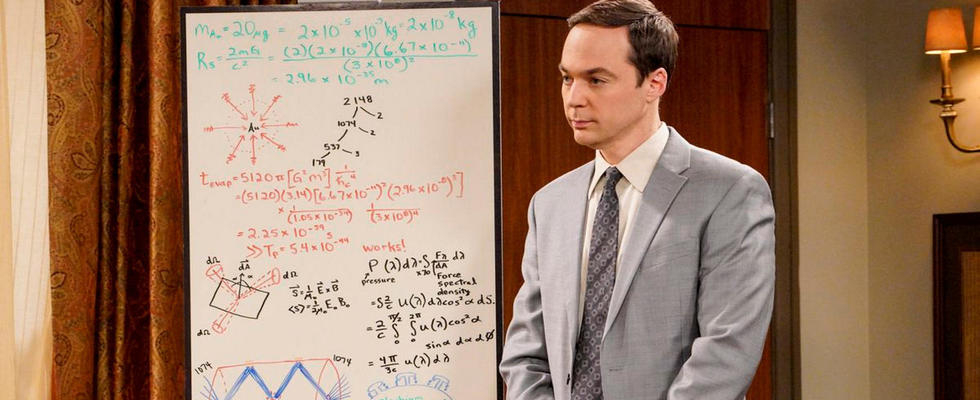 m_Au = 20μg = 2×10⁻⁵ ×10⁻³ kg = 2×10⁻⁸ kg
R_s = 2mG/c² = (2)(2×10⁻⁸)(6.67×10⁻¹¹)/(3×10⁸)²
= 2.96 × 10⁻³⁵ m
Au
2148
1074 2
537 2
179 3
t_evap = 5120π[G²m³] 1/ħc⁴
=(5120)(3.14)[(6.67×10⁻¹¹)²(2.96×10⁻⁸)³]
× 1/(1.05×10⁻³⁴) 1/(3×10⁸)⁴
= 2.25 × 10⁻³⁹ s
>> T_p = 5.4×10⁻⁴⁴
works!
P(λ)dλ = ∫ Fλ/dA dλ
pressure
Force
spectral
density
dΩ
dA
α
dΩ
dΩ
S = 1/μ₀ E×B
<S> = 1/2μ₀ E₀ B₀
= ∫ 2/c u(λ) dλ cos²α dS
= 2/c ∫₀^π/2 ∫₀^2π u(λ) cos²α
sinα dα dØ
= 4π/3c u(λ) dλ
1074
1074